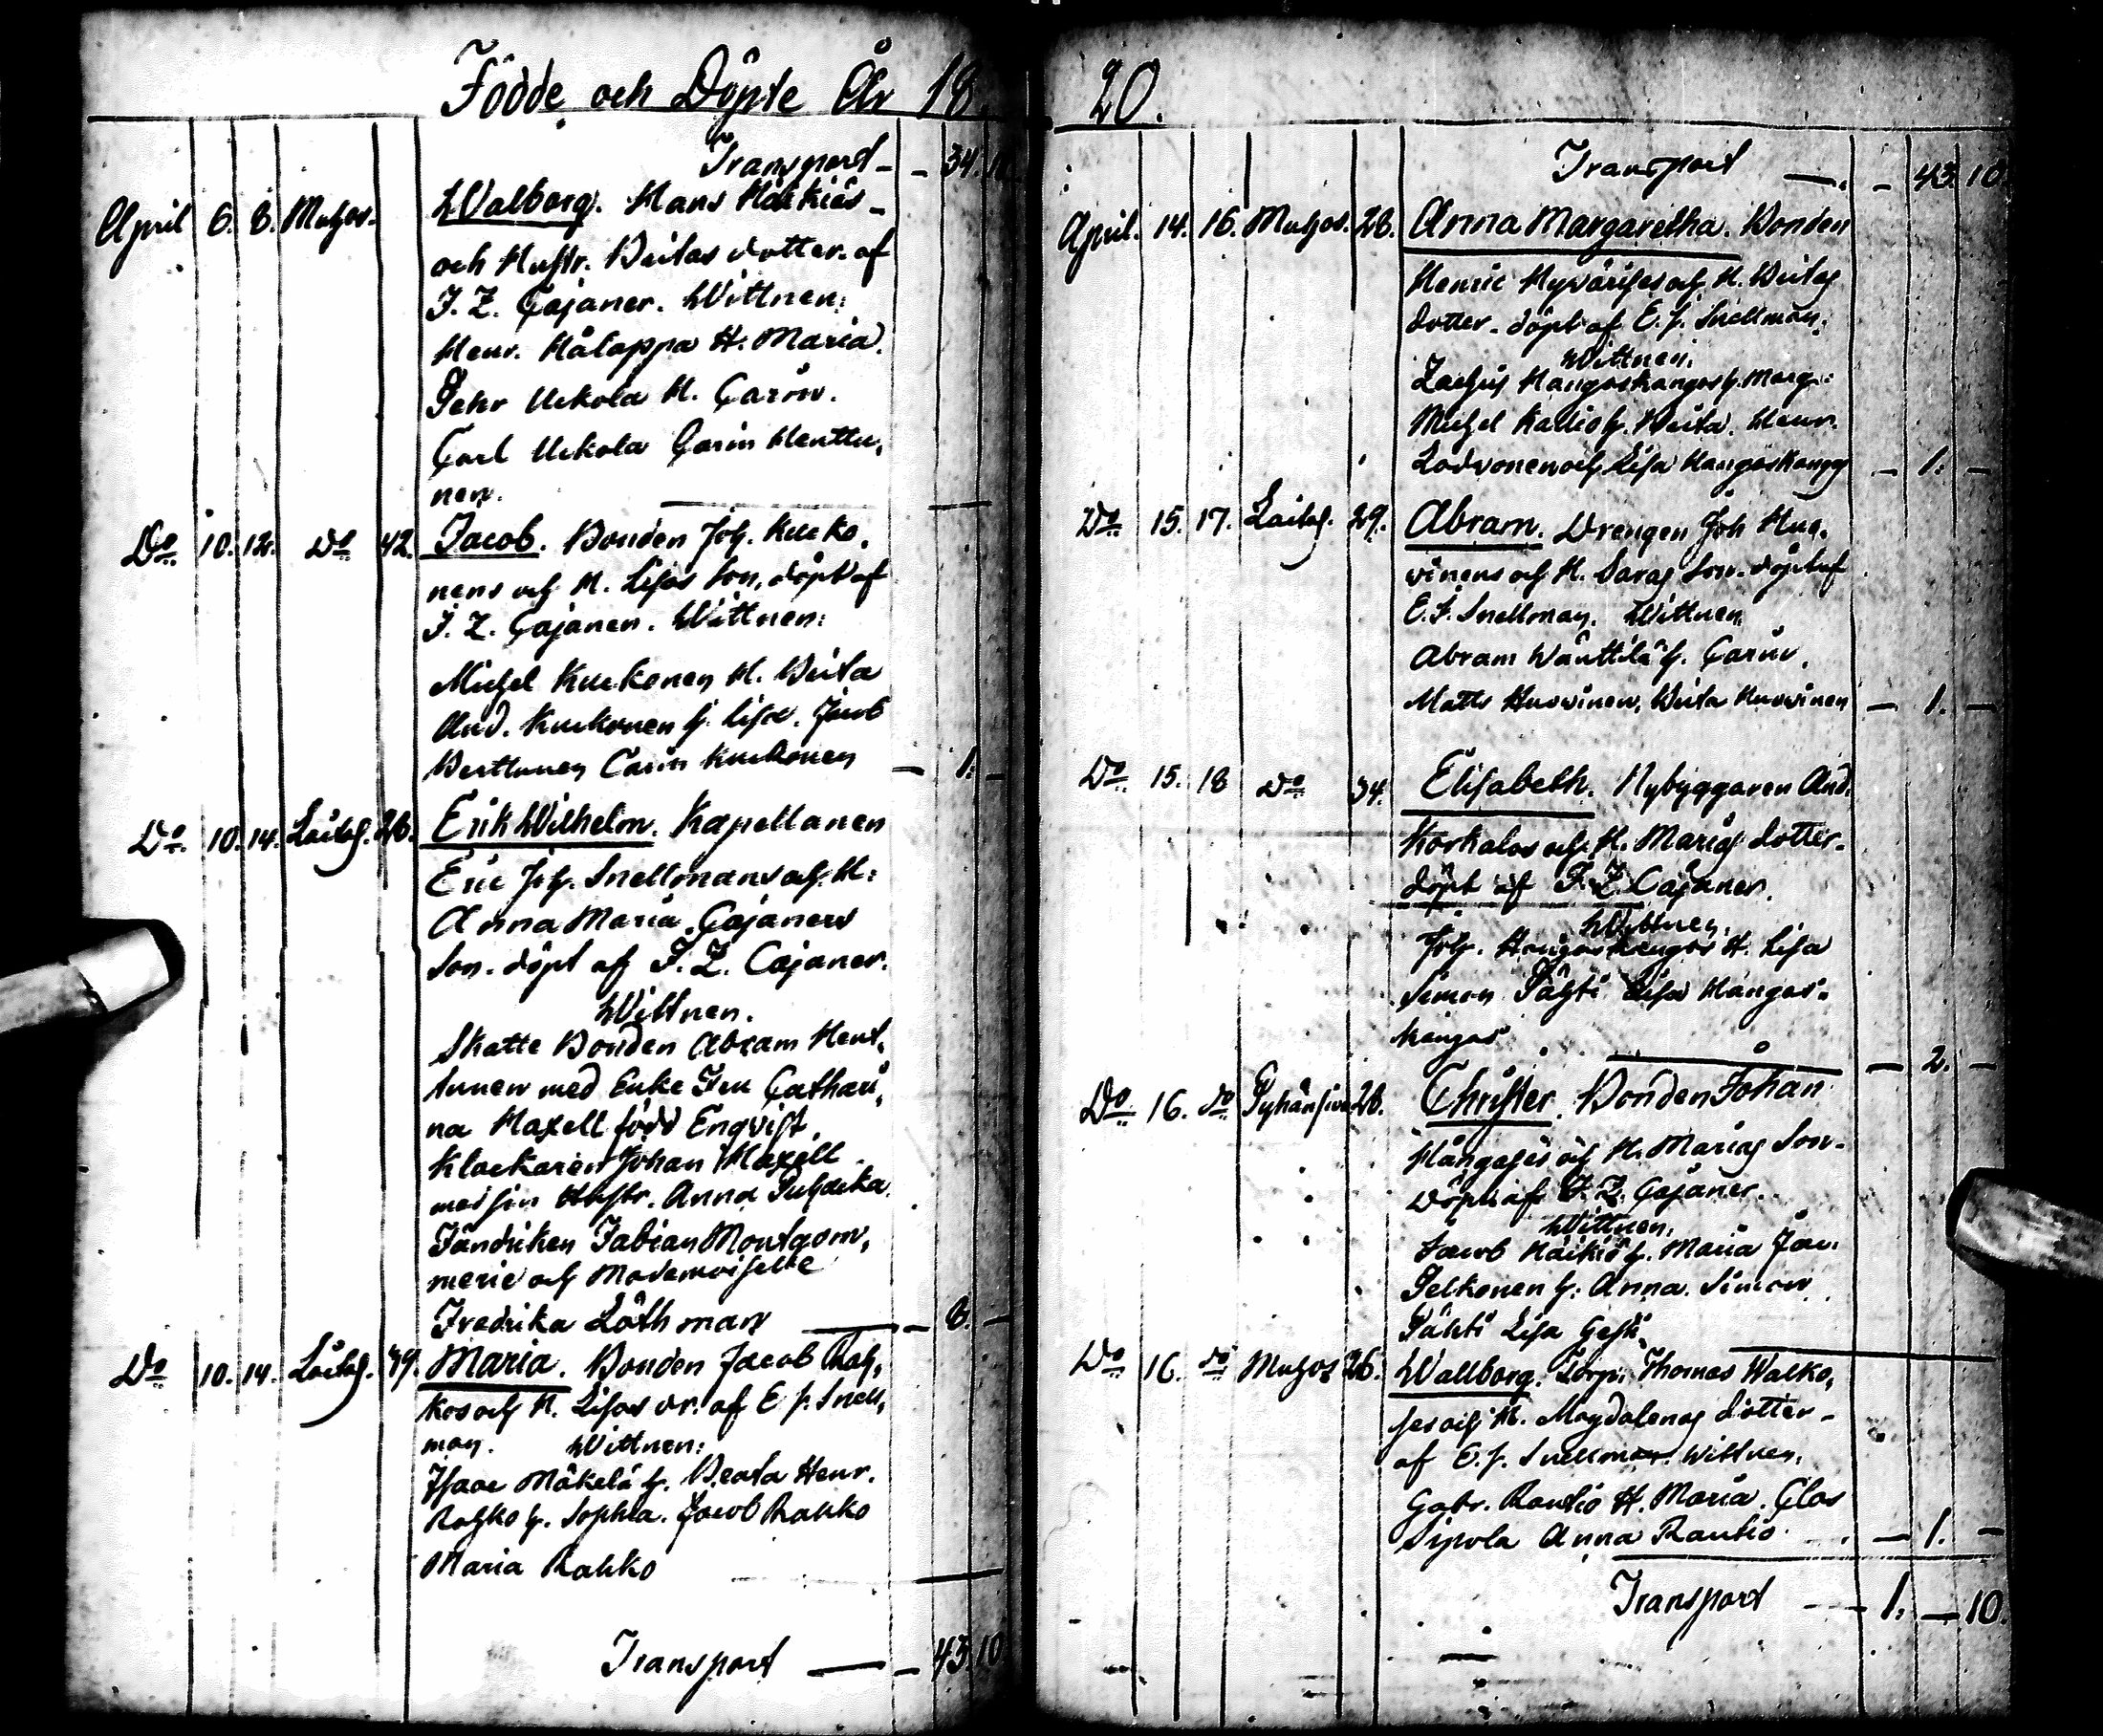 Födde och Döpte År 18
Transport - - 34. 10
April 6. 8. Muhos. Walborg. Hans Häikiös -
och Hustr. Beitas dotter. af
F. Z. Cajaner. Wittnen:
Henr. Hålappa H. Maria.
Pehr Uckola H. Carin.
Carl Uckola Carin Henttu,
nen.
Do 10. 12. Do 42. Jacob. Bonden Joh. Kucko,
nens och H. Lisas Son, döpt af
F. Z. Cajanen. Wittnen:
Michel Kuckonen H. Beita
And. Kuckonen h. Lisa. Jacob
Berttunen Carin Kuckonen - 1. -
Do. 10. 14. Laitas. 26. Erik Wilhelm. Kapellanen
Eric Joh. Snellmans och H:
Anna Maria Cajaners
Son. döpt af F. Z. Cajaner.
Wittnen.
Skatte Bonden Abram Hent,
tunen med Enke Fru Cathari,
na Haxell född Enqvist.
Klockaren Johan Haxell
med sin Hustr. Anna
Fändriken Fabian Montgom,
merie och Mademoiselle
Fredrika Löthman - 8. -
Do 10. 14. Laitas. 39. Maria. Bonden Jacob Rah,
kos och H. Lisas dr. af E. J. Snell,
man. Wittnen:
Isaac Mäkelä h. Beata Henr.
Rahko h. Sophia. Jacob Rahko
Maria Rahko
Transport - 43. 10
20.
Transport - - 43. 10.
April. 14. 16. Muhos. 28. Anna Margaretha. Bonden
Henric Hyvärises och H. Beitas
dotter. döpt af E. J. Snellman.
Wittnen.
Zachris Hangaskangas h. Marg:
Michel Kallio h. Beita. Henr.
Lodvonen och Lisa Hangaskang - 1. -
Do 15. 17. Laitas. 29. Abram. Drengen Joh Huo,
vinens och H. Saras Son. döpt af
E. J. Snellman. Wittnen.
Abram Wänttilä h. Carin.
Matts Huovinen, Beita Huovinen - 1. -
Do. 15. 18 Do 34. Elisabeth. Nybyggaren And.
Korkalos och H. Marias dotter.
döpt af F. Z. Cajaner.
Wittnen.
Joh. Hangaskangas H. Lisa
Simon Pähti Lisa Hangas-
kangas - 2. -
Do 16. do 28. Christer. Bonden Johan
och H. Marias Son.
döpt af F. Z. Cajaner.
Wittnen.
Jacob Häikiö h. Maria Jac.
Pelkonen h. Anna. Simon
Pähti Lisa
Do 16. do Muhos 26. Wallborg. Torp. Thomas Walko,
ses och H. Magdalenas dotter -
af E. J. Snellman. Wittnen.
Gabr. Rautio H. Maria. Clas
Sipola Anna Rautio. - 1. -
Transport - 1. - 10.